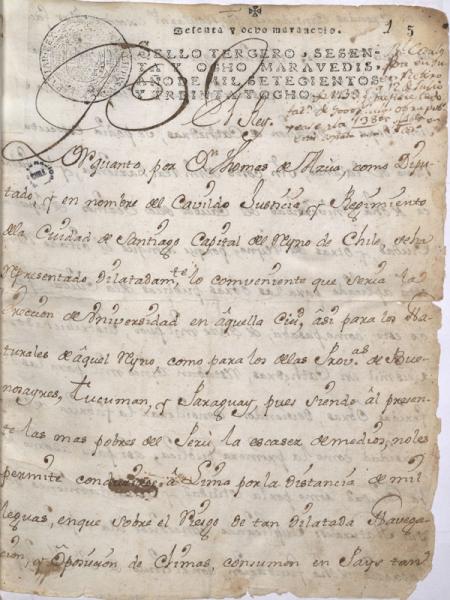 Sesenta y ocho maravedis. 1 5
SELLO TERCERO, SESEN-
TA Y OCHO MARAVEDIS,
AÑO DE MIL SETECIENTOS
Y TREINTA Y OCHO.
El Rey.
Por quanto, por Dn Thomas de Azua, como Dipu-
tado, y en nombre del Cavildo Justicia, y Regimiento
de la Ciudad de Santiago Capital del Reyno de Chile, se ha
Representado dilatadamte lo conveniente que seria la
ereccion de Universidad en aquella Ciud, asi para los Na-
turales de aquel Reyno como para los de las Provas de Bue-
nos ayres, Tucuman, y Paraguay, pues siendo al presen-
te las mas pobres del Perú la escasez de medios, no les
permite conducirse a Lima por la distancia de mil
leguas, en que sobre el Riesgo de tan dilatada Navega-
cion, y oposicion de Climas, consumen en Pays tan